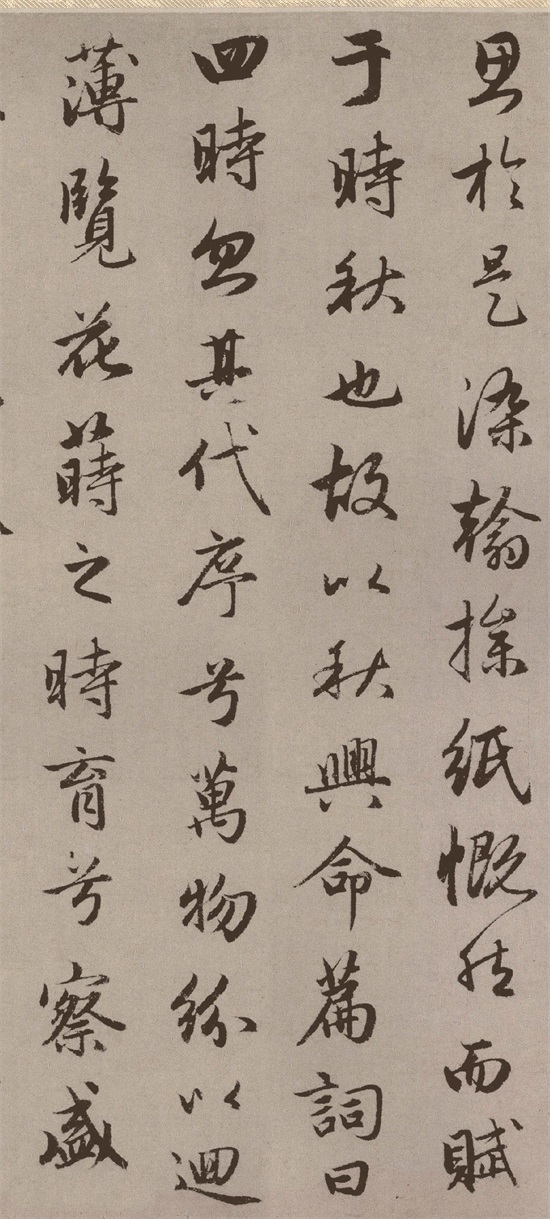 思於是染翰操紙慨然而賦
于時秋也故以秋興命篇詞曰
四時忽其代序兮萬物紛以迴
薄覽花蒔之時育兮察盛